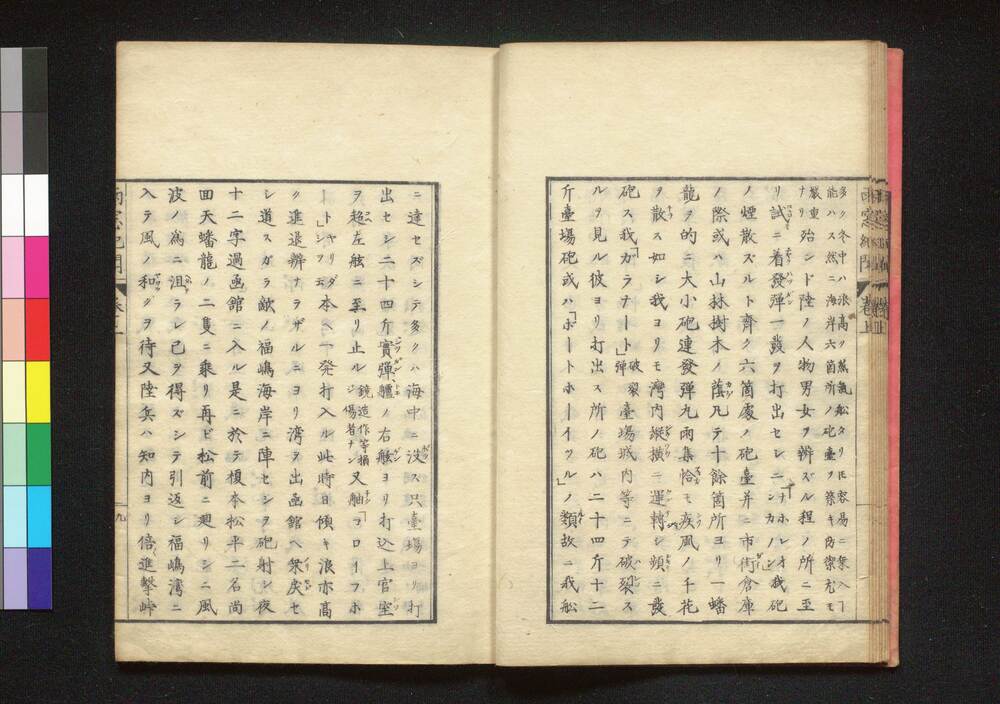 多ク冬中ハ浪高ク蒸氣船タリ𪜈容易ニ乗入ヿ
能ハス然ニ海岸六箇所ノ砲臺ヲ築キ防禦尤モ
嚴重
ナリ殆ンド陸ノ人物男女ヲ辨ズル程ノ所ニ至
リ試ニ着發彈一發ヲ打出セシニ我砲
ノ煙散ズルト齊ク六箇處ノ砲臺并ニ市街倉庫
ノ際或ハ山林樹木ノ蔭凡テ十餘箇所ヨリ一蟠
龍ヲ的ニ大小砲連發彈丸雨集恰モ疾風ノ千花
ヲ散ス如シ我ヨリモ灣内縱横ニ運轉シ頻ニ發
砲ス我「ガラナート」破裂彈臺場城内等ニテ破裂ス
ルヲ見ル彼ヨリ打出ス所ノ砲ハ二十四斤十二
斤臺場砲或ハ「ボートホーイツル」ノ類故ニ我舩
ニ達セズシテ多クハ海中ニ没ス只臺場ヨリ打
出セシ二十四斤實彈艫ノ右舷ヨリ打込上官室
ヲ越左舷ニ至リ止ル鏡造作等損ジ傷者ナシ又舳
ート」ヤリダシヲ云本ヘ一発打入ル此時日傾キ浪亦高
ク進退辨ナラザルニヨリ湾ヲ出函館ヘ架戻セ
シ道スガラ敵ノ福嶋海岸ニ陣セシヲ砲射シ夜
十二字過函館ニ入ル是ニ於テ榎本松平二名尚
回天蟠龍ノ二隻ニ乗リ再ビ松前ニ廻リシニ風
波ノ為ニ沮ラレ已ヲ得ズシテ引返シ福嶋湾ニ
入テ風ノ和グヲ待又陸兵ハ知内ヨリ倍進擊峠
九